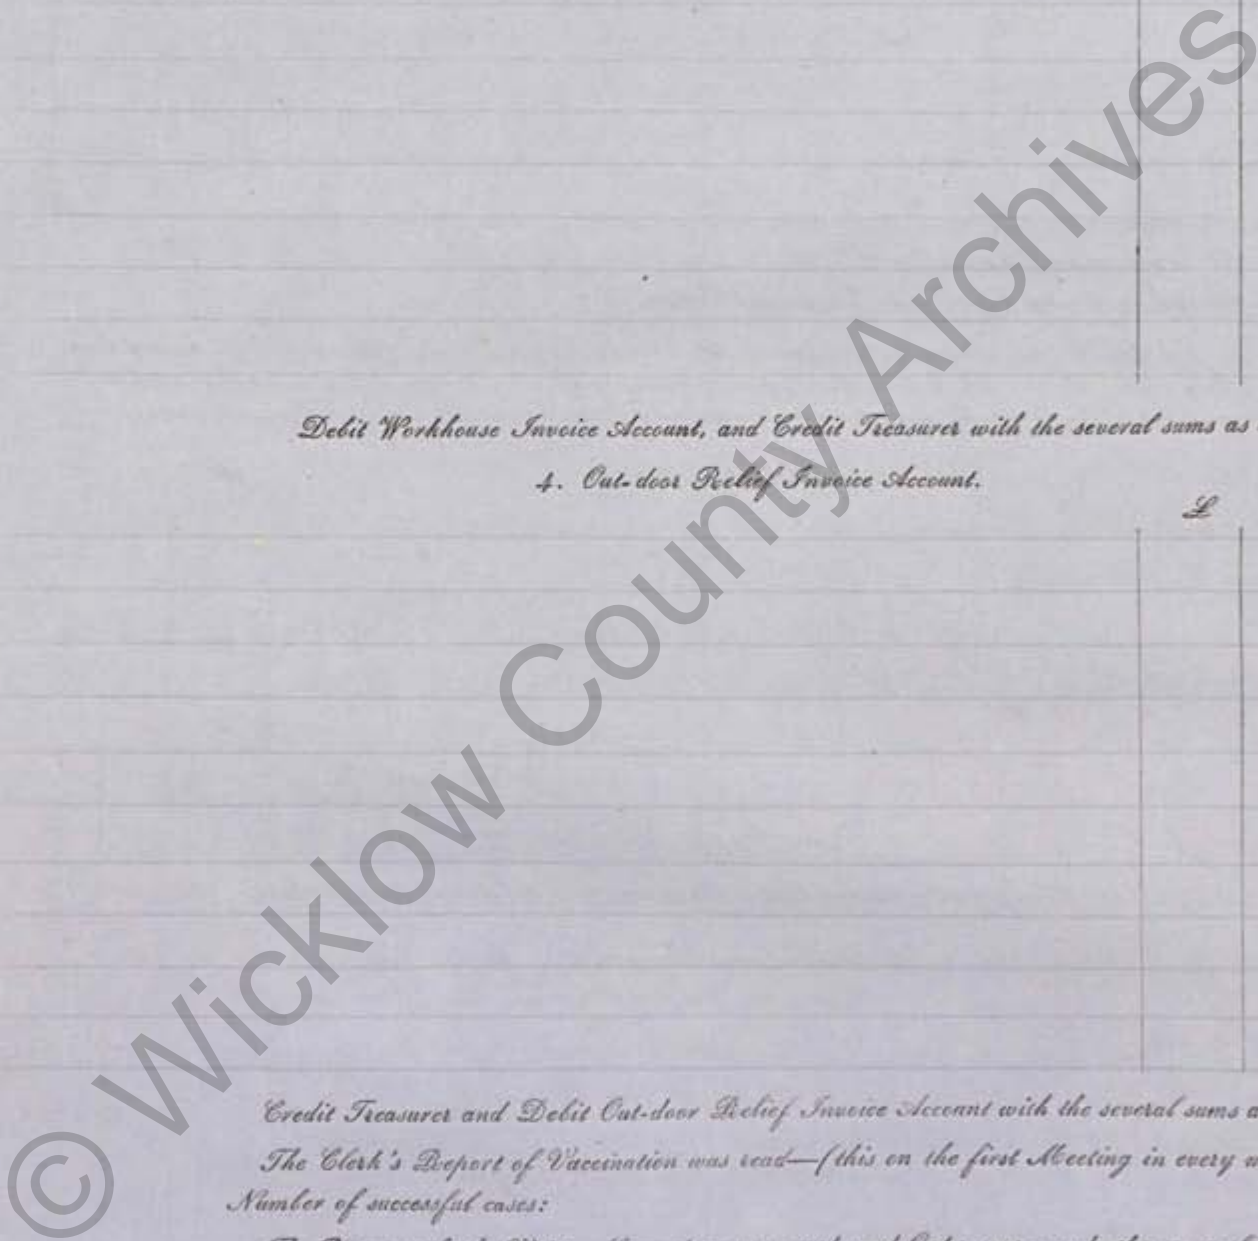 Debit Workhouse Invoice Account, and Credit Treasurer with the several sums as
4. Out-door Relief Invoice Account.
£
Credit Treasurer and Debit Out-door Relief Invoice Account with the several sums a
The Clerk's Report of Vaccination was read—(this on the first Meeting in every
Number of successful cases:
© Wicklow County Archives